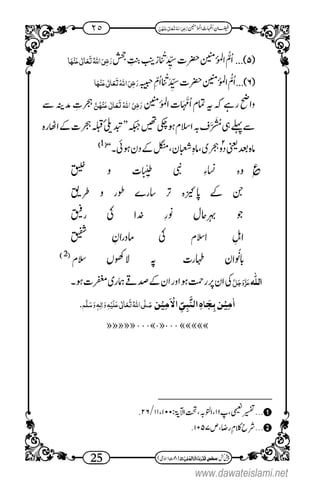 ۲۵
(۵)...اُمُّ المؤمنین حضرت سیِّدَتُنا زینب بنتِ جحش رَضِیَ اللہُ تَعَالٰی عَنْہَا
(۶)...اُمُّ المؤمنین حضرت سیِّدَتُنا اُمِّ حبیبہ رَضِیَ اللہُ تَعَالٰی عَنْہَا
واضح رہے کہ یہ تمام اُمَّہاتُ المؤمنین رَضِیَ اللہُ تَعَالٰی عَنْہُنَّ ہجرتِ مدینہ سے
پہلے ہی مُشَرَّف بہ اسلام ہو چکی تھیں جبکہ ”تبدیلیِ قبلہ ہجرت کے اٹھارہ
ماہ بعد یعنی دو ہجری، ماہِ شعبان، منگل کے دن ہوئی۔“(1)
وہ نساءِ نبی طیبات و خلیق
جن کے پاکیزہ تر سارے طور و طریق
جو بہرحال نورِ خدا کی رفیق
اہلِ اسلام کی مادرانِ شفیق
بانوانِ طہارت پہ لاکھوں سلام (2)
اللہ عَزَّوَجَلَّ کی ان پر رحمت ہو اور ان کے صدقے ہماری مغفرت ہو۔
اٰمِیْن بِجَاہِ النَّبِیِّ الْاَمِیْن صَلَّی اللہُ تَعَالٰی عَلَیْہِ وَاٰلِہٖ وَسَلَّم.
»»»»»...«»...«««««
1...تفسیرِ نعیمی، پ۱۱، التوبۃ، تحت الآیۃ:۱۰۰، ۱۱/۲۶.
2...شرح کلامِ رضا، ص۱۰۵۷.
25
www.dawateislami.net